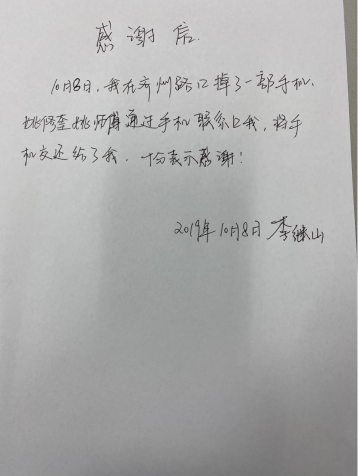 感谢信.
10月8日，我在齐州路口掉了一部手机.
姚师傅通过手机联系上我，将手
机交还给了我. 十分表示感谢！
2019年10月8日 李继山